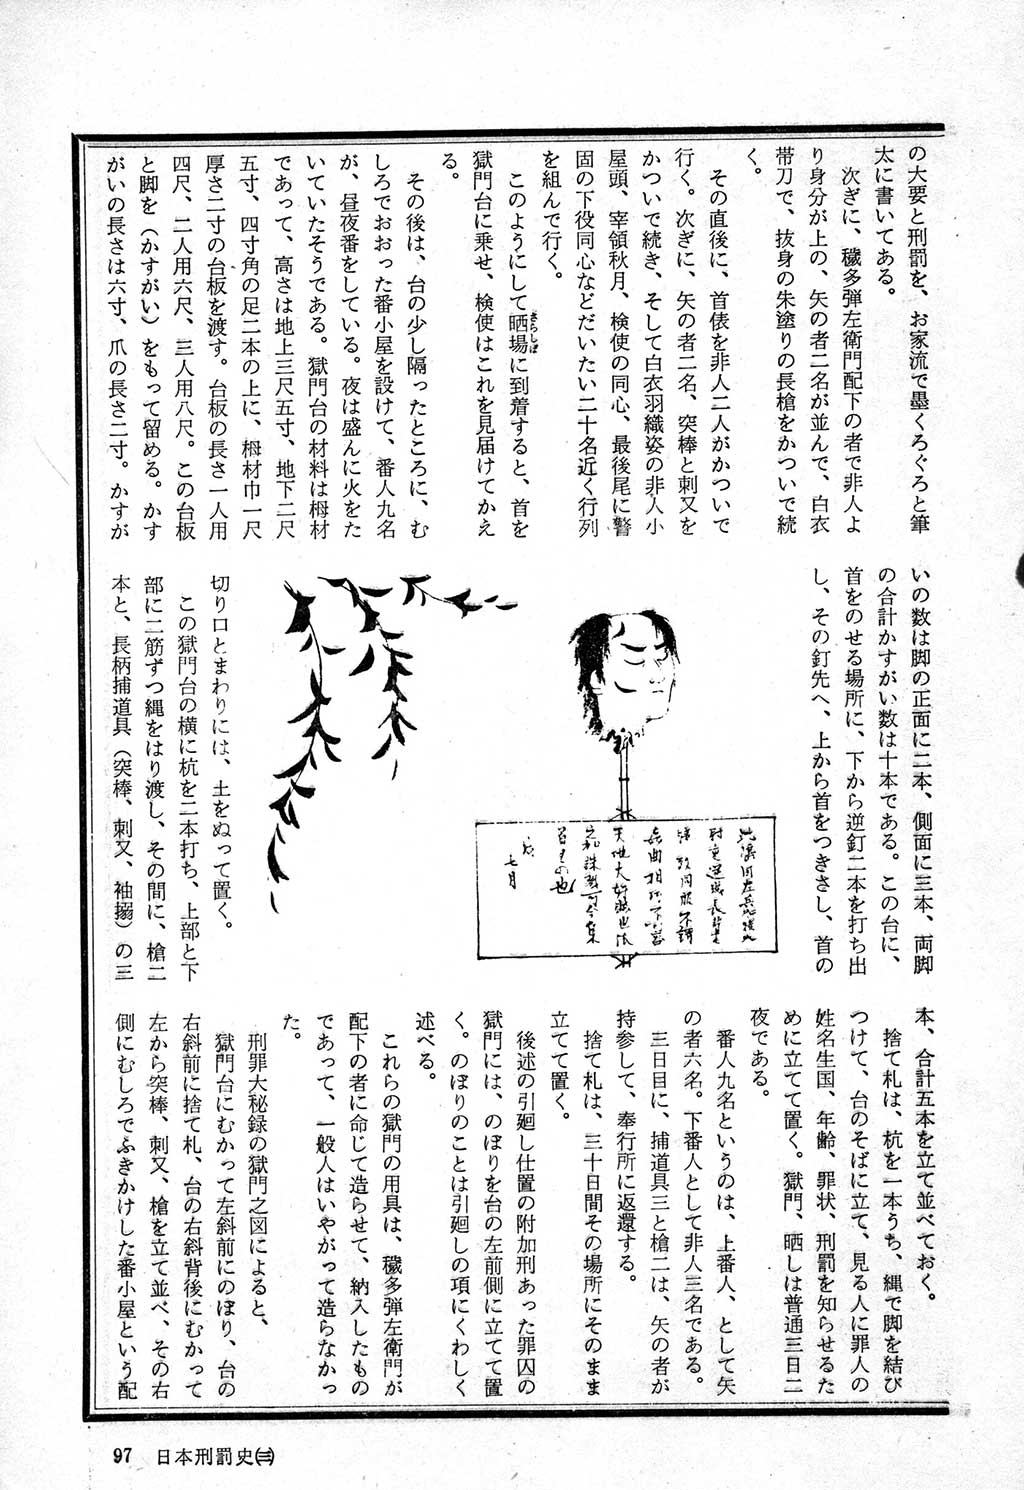 の大要と刑罰を、お家流で墨くろぐろと筆
太に書いてある。
次ぎに、穢多弾左衛門配下の者で非人よ
り身分が上の、矢の者二名が並んで、白衣
帯刀で、抜身の朱塗りの長槍をかついで続
く。
その直後に、首俵を非人二人がかついで
行く。次ぎに、矢の者二名、突棒と刺又を
かついで続き、そして白衣羽織姿の非人小
屋頭、宰領秋月、検使の同心、最後尾に警
固の下役同心などだいたい二十名近く行列
を組んで行く。
このようにして晒場に到着すると、首を
さらしば
獄門台に乗せ、検使はこれを見届けてかえ
る。
その後は、台の少し隔ったところに、む
しろでおおった番小屋を設けて、番人九名
が、昼夜番をしている。夜は盛んに火をた
いていたそうである。獄門台の材料は栂材
であって、高さは地上三尺五寸、地下二尺
五寸、四寸角の足二本の上に、栂材巾一尺
厚さ二寸の台板を渡す。台板の長さ一人用
四尺、二人用六尺、三人用八尺。この台板
と脚を（かすがい）をもって留める。かす
がいの長さは六寸、爪の長さ二寸。かすが
いの数は脚の正面に二本、側面に三本、両脚
の合計かすがい数は十本である。この台に、
首をのせる場所に、下から逆釘二本を打ち出
し、その釘先へ、上から首をつきさし、首の
七月
切り口とまわりには、土をぬって置く。
この獄門台の横に杭を二本打ち、上部と下
部に二筋ずつ縄をはり渡し、その間に、槍二
本と、長柄捕道具（突棒、刺又、袖搦）の三
本、合計五本を立て並べておく。
捨て札は、杭を一本うち、縄で脚を結び
つけて、台のそばに立て、見る人に罪人の
姓名生国、年齢、罪状、刑罰を知らせるた
めに立てて置く。獄門、晒しは普通三日二
夜である。
番人九名というのは、上番人、として矢
の者六名。下番人として非人三名である。
三日目に、捕道具三と槍二は、矢の者が
持参して、奉行所に返還する。
捨て札は、三十日間その場所にそのまま
立てて置く。
後述の引廻し仕置の附加刑あった罪囚の
獄門には、のぼりを台の左前側に立てて置
く。のぼりのことは引廻しの項にくわしく
述べる。
これらの獄門の用具は、穢多弾左衛門が
配下の者に命じて造らせて、納入したもの
であって、一般人はいやがって造らなかっ
た。
刑罪大秘録の獄門之図によると、
獄門台にむかって左斜前にのぼり、台の
右斜前に捨て札、台の右斜背後にむかって
左から突棒、刺又、槍を立て並べ、その右
側にむしろでふきかけした番小屋という配
97 日本刑罰史㈢